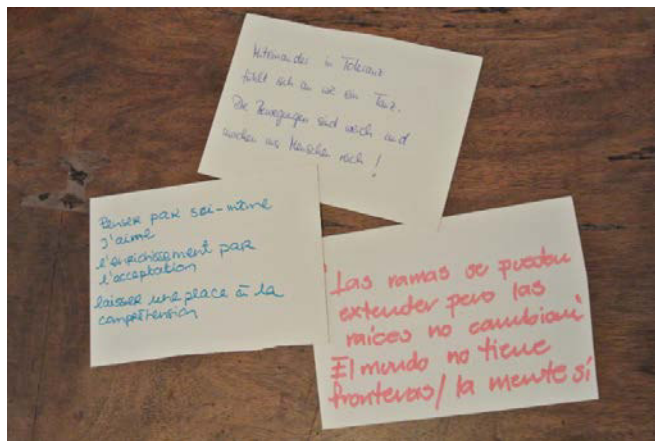 Miteinander in Toleranz
fühlt sich an wie ein Tanz.
Die Bewegungen sind weich und
machen uns Menschen reich!
Penser par soi-même
J'aime
l'enrichissement par
l'acceptation
laisser une place à la
compréhension
Las ramas se pueden
extender pero las
raíces no cambian¡
El mundo no tiene
fronteras/ la mente sí